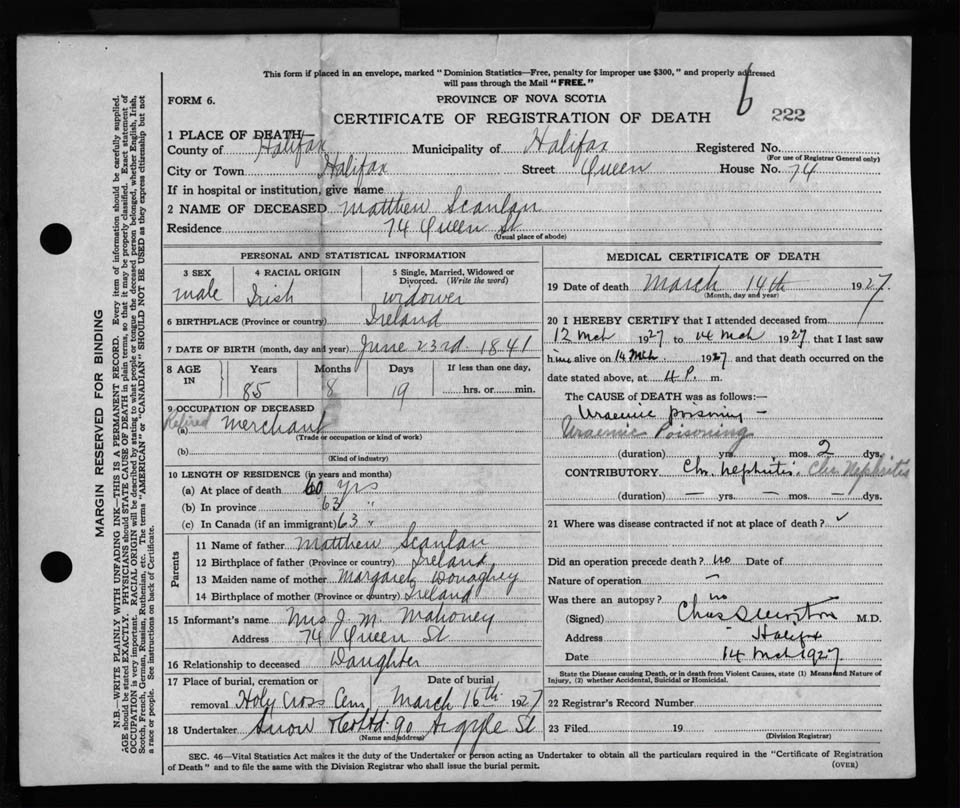 This form if placed in an envelope, marked "Dominion Statistics—Free, penalty for improper use $300," and properly addressed
will pass through the Mail "FREE."
FORM 6.
PROVINCE OF NOVA SCOTIA
6
CERTIFICATE OF REGISTRATION OF DEATH
222
1 PLACE OF DEATH—
County of Halifax Municipality of Halifax Registered No.
(For use of Registrar General only)
City or Town Halifax Street Queen House No. 74
If in hospital or institution, give name
2 NAME OF DECEASED Matthew Scanlan
Residence 74 Queen St
(Usual place of abode)
PERSONAL AND STATISTICAL INFORMATION
3 SEX 4 RACIAL ORIGIN 5 Single, Married, Widowed or
Divorced. (Write the word)
male Irish widower
6 BIRTHPLACE (Province or country) Ireland
7 DATE OF BIRTH (month, day and year) June 23rd 1841
8 AGE IN Years Months Days If less than one day,
85 8 19 hrs. or min.
9 OCCUPATION OF DECEASED
(a) Retired Merchant
(Trade or occupation or kind of work)
(b)
(Kind of industry)
10 LENGTH OF RESIDENCE (in years and months)
(a) At place of death 60 yrs
(b) In province 63 "
(c) In Canada (if an immigrant) 63 "
Parents
11 Name of father Matthew Scanlan
12 Birthplace of father (Province or country) Ireland
13 Maiden name of mother Margaret Donaghey
14 Birthplace of mother (Province or country) Ireland
15 Informant's name Mrs J. M. Mahoney
Address 74 Queen St
16 Relationship to deceased Daughter
17 Place of burial, cremation or Date of burial
removal Holy Cross Cem, March 16th 1927
18 Undertaker Snow & Co Ltd. 90 Argyle St
(Name and address)
MEDICAL CERTIFICATE OF DEATH
19 Date of death March 14th 1927
(Month, day and year)
20 I HEREBY CERTIFY that I attended deceased from
12 Mch 1927 to 14 Mch 1927, that I last saw
him alive on 14 Mch 1927 and that death occurred on the
date stated above, at 4 P. m.
The CAUSE of DEATH was as follows:—
Uraemic poisoning —
Uraemic Poisoning
(duration) yrs. mos. 2 dys.
CONTRIBUTORY Chr. nephritis. Chr Nephritis
(duration) — yrs. — mos. — dys.
21 Where was disease contracted if not at place of death? ✓
Did an operation precede death? no Date of
Nature of operation —
Was there an autopsy? no
(Signed) Chas M.D.
Address Halifax
Date 14 Mch 1927
State the Disease causing Death, or in death from Violent Causes, state (1) Means and Nature of
Injury, (2) whether Accidental, Suicidal or Homicidal.
22 Registrar's Record Number
23 Filed 19
(Division Registrar)
SEC. 46—Vital Statistics Act makes it the duty of the Undertaker or person acting as Undertaker to obtain all the particulars required in the "Certificate of Registration
of Death" and to file the same with the Division Registrar who shall issue the burial permit.
(OVER)
MARGIN RESERVED FOR BINDING
N.B.—WRITE PLAINLY WITH UNFADING INK—THIS IS A PERMANENT RECORD. Every item of information should be carefully supplied.
AGE should be stated EXACTLY. PHYSICIANS should STATE CAUSE OF DEATH in plain terms, so that it may be properly classified. Exact statement of
OCCUPATION is very important. RACIAL ORIGIN will be described by stating to what people or tongue the deceased person belonged, whether English, Irish,
Scotch, French, German, Russian, Ruthenian, etc. The terms "AMERICAN" or "CANADIAN" SHOULD NOT BE USED as they express citizenship but not
a race or people. See instructions on back of Certificate.